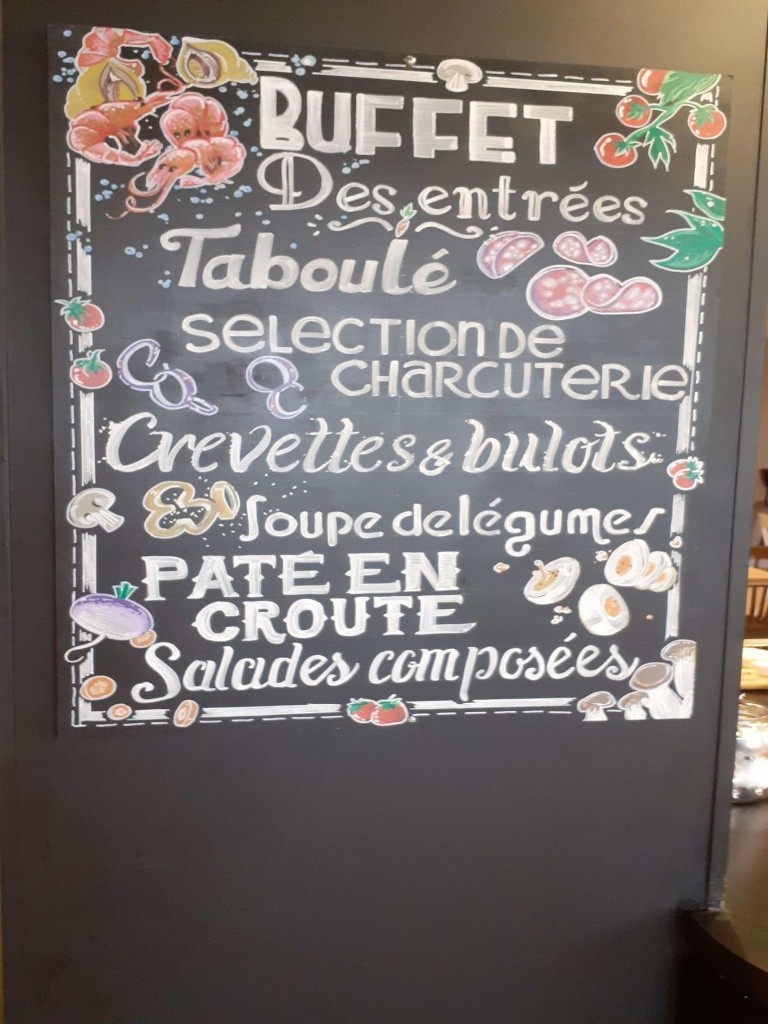 BUFFET
Des entrées
Taboulé
SELECTION DE
CHARCUTERIE
Crevettes & bulots
Soupe de légumes
PATÉ EN
CROUTE
Salades composées